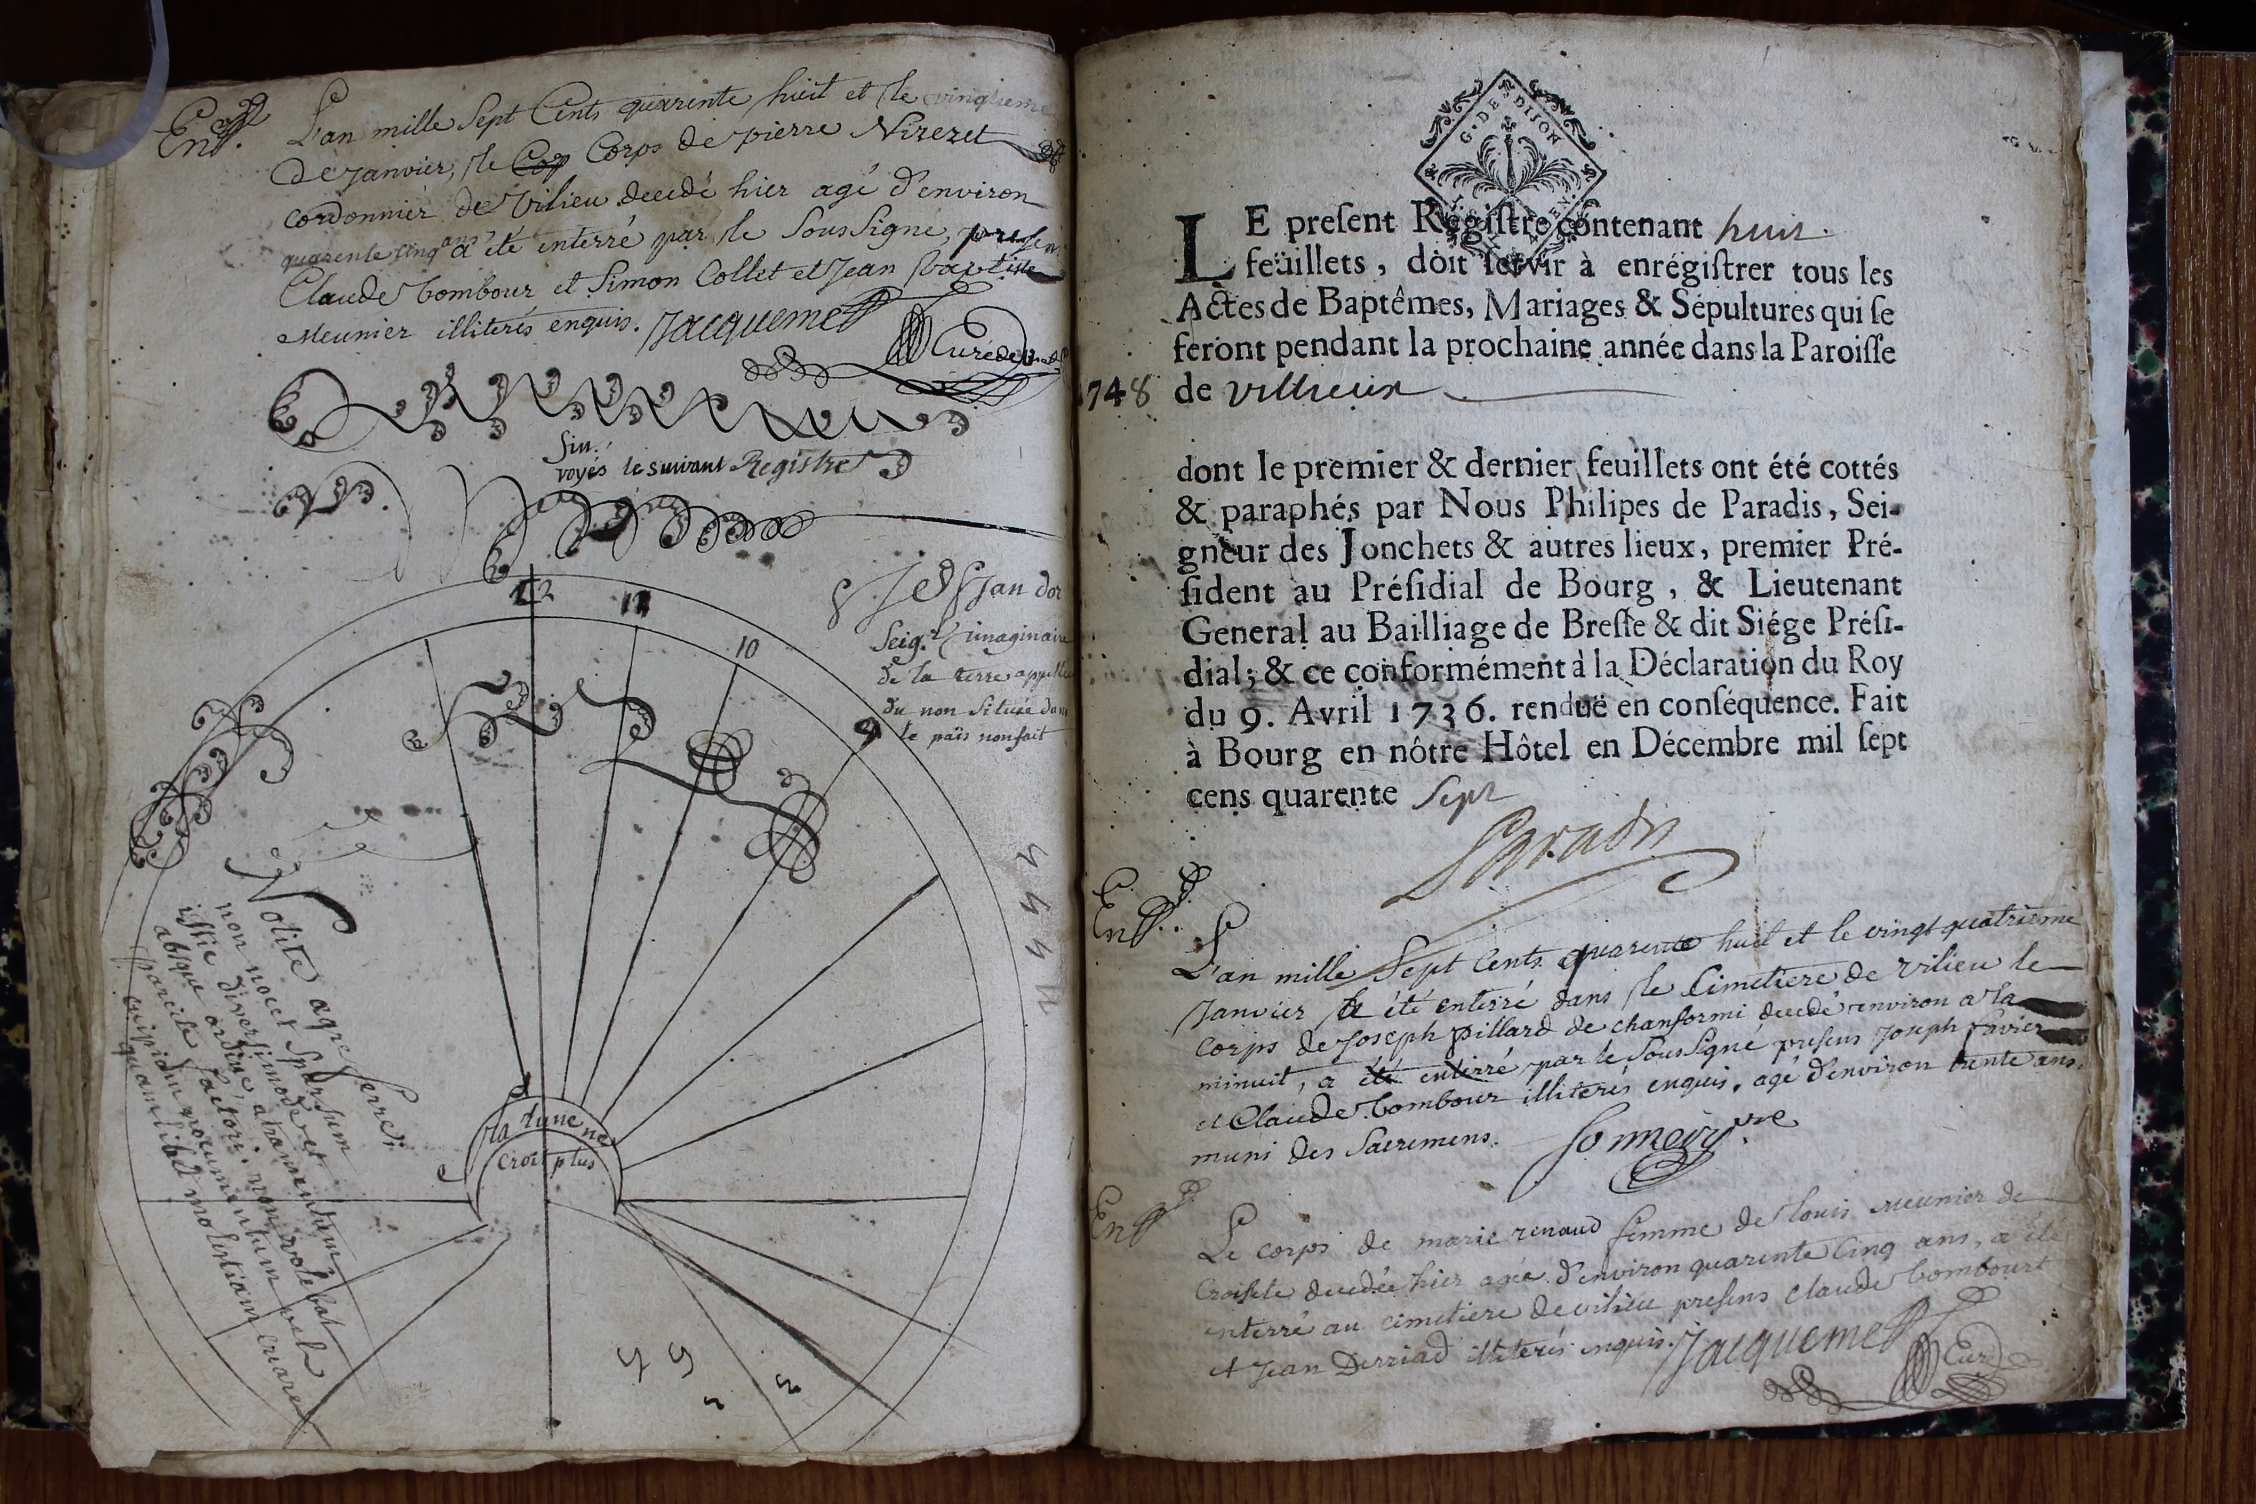 Ent.
L'an mille Sept Cents quarente huit et le vingtieme
de janvier, le Cop Corps de pierre Nizeret
cordonnier de Vilieu decedé hier agé d'environ
quarente cinq ans a été enterré par le Sous Signé, presens
Claude bombour et Simon Collet et Jean baptiste
Meunier illiterés enquis. Jacquemet
Curé de
fin.
voyés le suivant Registre
12
11
10
9
Jan dor
Seigr imaginaire
de la terre appellée
du non Située dans
le païs non fait
la lune ne
croit plus
Nolite aegre ferre:
non nocet sparsum
diversimode et
absque ordine, atramentum
parcite factori. non volebat
cuipiam nocumentum vel
quamlibet molestiam creare
5 5
G. DE DIJON
LE present Registre contenant huit
feüillets, doit servir à enrégistrer tous les
Actes de Baptêmes, Mariages & Sépultures qui se
feront pendant la prochaine année dans la Paroisse
1748 de Villieux
dont le premier & dernier feuillets ont été cottés
& paraphés par Nous Philipes de Paradis, Sei-
gneur des Jonchets & autres lieux, premier Pré-
sident au Présidial de Bourg, & Lieutenant
General au Bailliage de Bresse & dit Siége Prési-
dial; & ce conformément à la Déclaration du Roy
du 9. Avril 1736. renduë en conséquence. Fait
à Bourg en nôtre Hôtel en Décembre mil sept
cens quarente Sept
Paradis
Ent.
L'an mille Sept Cents quarente huit et le vingt quatrieme
Janvier a été enterré dans le Cimetiere de Vilieu le
corps de Joseph pillard de chanformi decedé environ a la
minuit, a été enterré par le Sous Signé presens Joseph favier
et Claude bombour illiterés enquis. agé d'environ trente ans.
muni des Sacremens.
Ent
Le corps de marie renaud femme de louis meunier de
Croisete decedée hier agée d'environ quarente Cinq ans, a été
enterré au cimetiere de vilieu presens Claude bombourt
et Jean Derriad illiterés enquis. Jacquemet
Curé